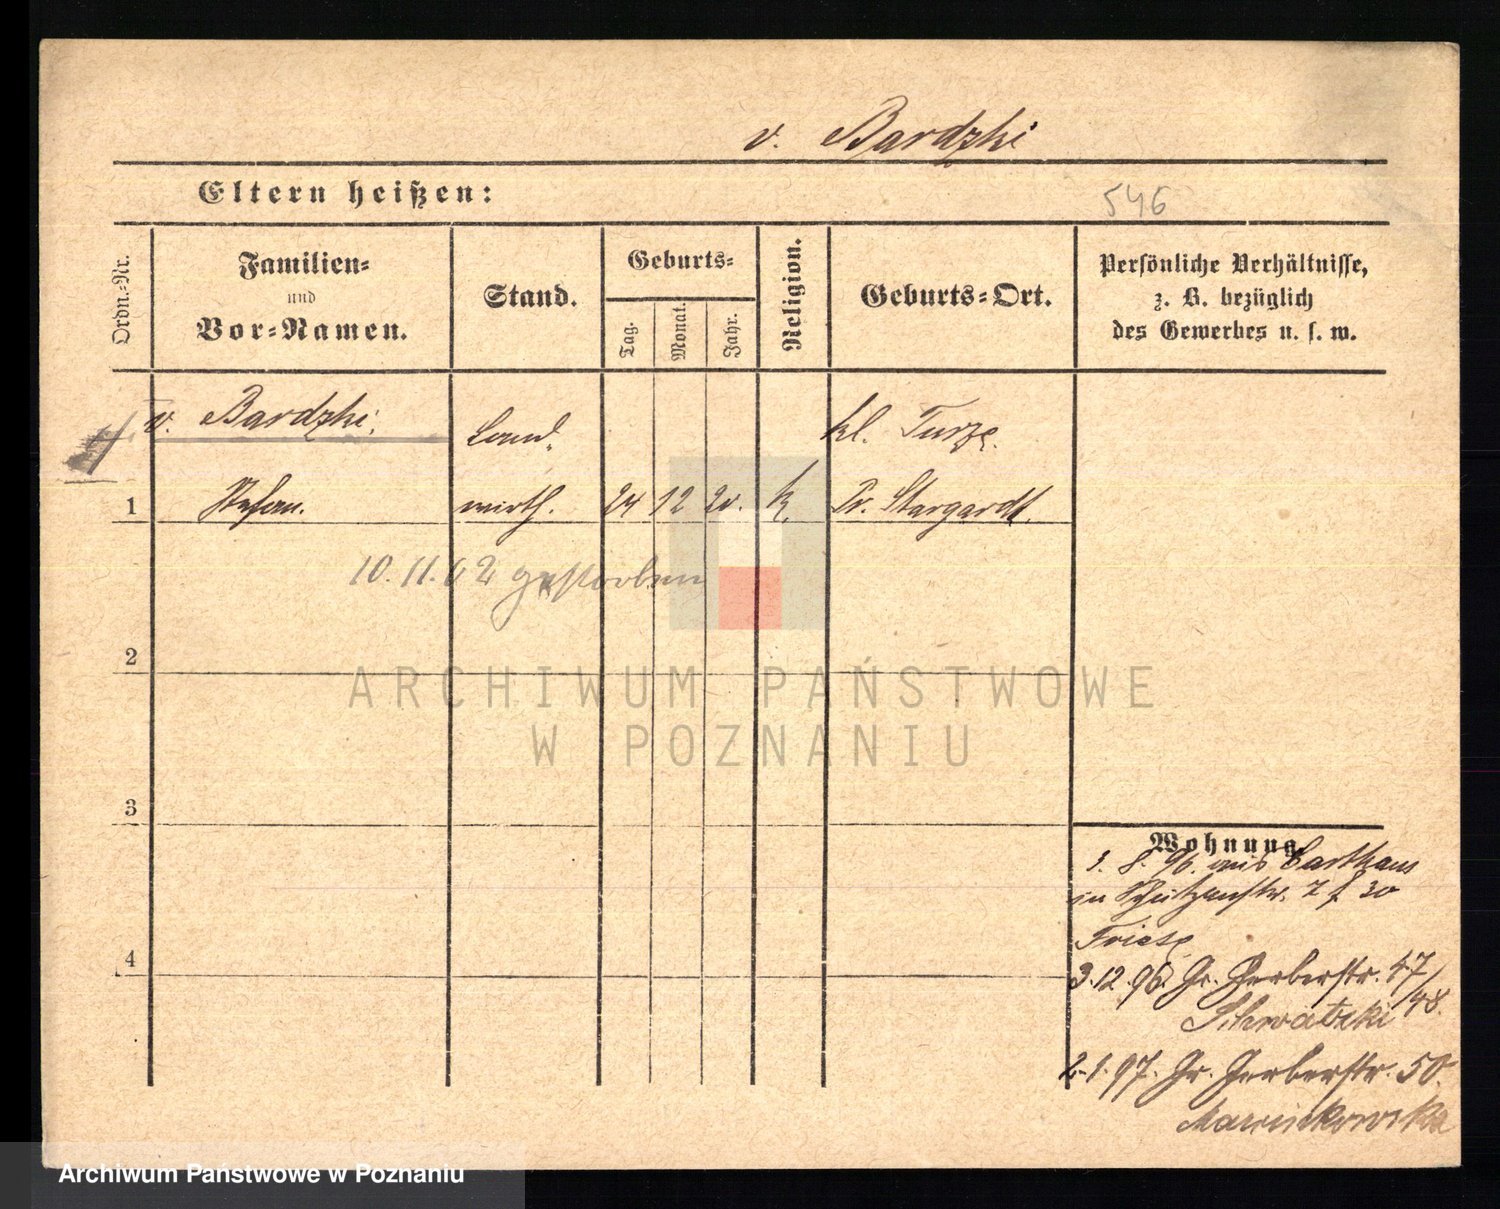 v. Bardzki
Eltern heißen:
546
Ordn.-Nr.
Familien-
und
Vor-Namen.
Stand.
Geburts-
Tag.
Monat.
Jahr.
Religion.
Geburts-Ort.
Persönliche Verhältnisse,
z. B. bezüglich
des Gewerbes u. s. w.
v. Bardzki,
Land
kl. Turze.
1
Stefan.
wirth.
24 12 20. k.
Pr. Stargardt.
10. 11. 02 gestorben
2
ARCHIWUM PAŃSTWOWE
W POZNANIU
3
Wohnung.
3. 8. 96. aus Carthaus
in Schützenstr. 30
Friese
4
3.12.96. Gr. Gerberstr. 47/48.
2.1.97. Gr. Gerberstr. 50.
Marcinkowska
Archiwum Państwowe w Poznaniu